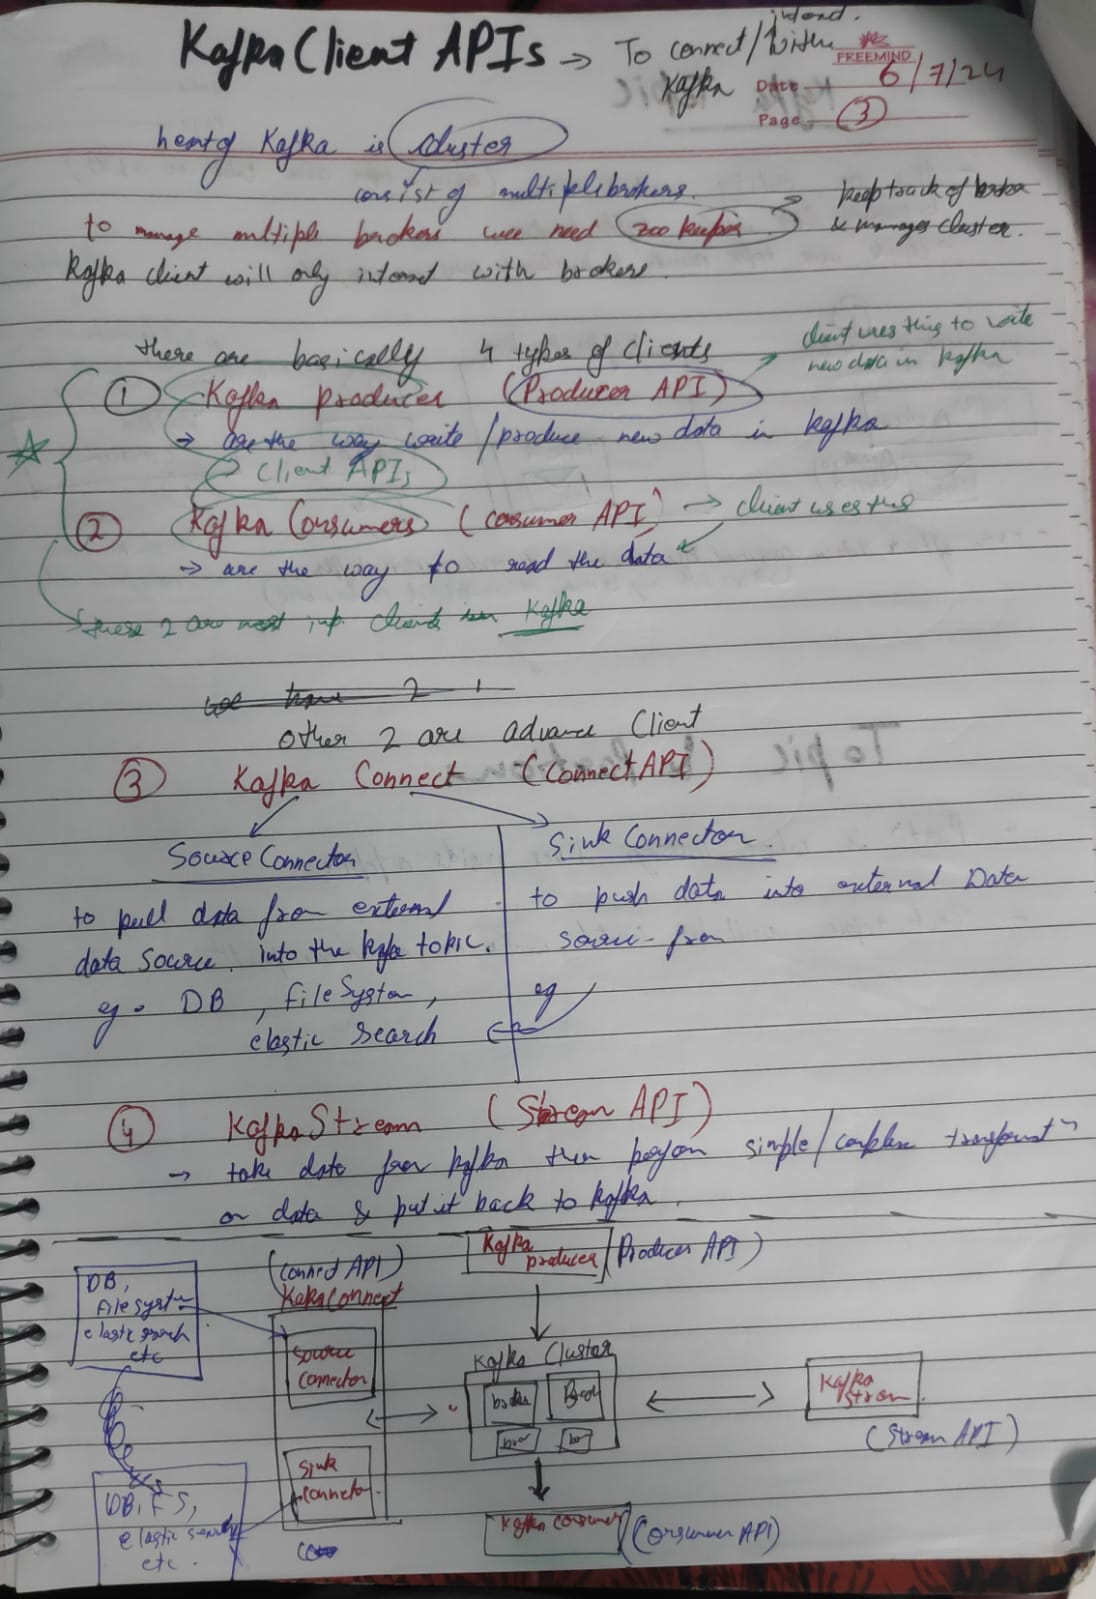 Kafka Client APIs → To connect/intend. with Kafka
FREEMIND
Date 6/7/24
Page 3
heart of Kafka is cluster
consist of multiple brokers.
to manage multiple brokers wee need zookeeper → keep track of broker & manages cluster.
Kafka client will only interact with brokers.
there are basically 4 types of clients
client uses this to write new data in kafka
① Kafka producer (Producer API)
→ are the way write/produce new data in kafka
Client APIs
② Kafka Consumers (consumer API) → client uses this
→ are the way to read the data
these 2 are most imp. clients in Kafka
we have 2
other 2 are advance Client
③ Kafka Connect (Connect API)
Source Connector
to pull data from external
data source. into the kafka topic.
eg. DB, file System,
elastic search
Sink Connector
to push data into external Data
source from
eg
④ Kafka Stream (Stream API)
→ take data from kafka then perform simple/complex transformatn
on data & put it back to kafka.
Kafka producer (Producer API)
(Connect API)
Kafka Connect
DB,
file system
elastic search
etc
source connector
Kafka Cluster
broker
Kafka Stream
(Stream API)
sink connector
DB, FS,
elastic search
etc.
Kafka consumer (Consumer API)